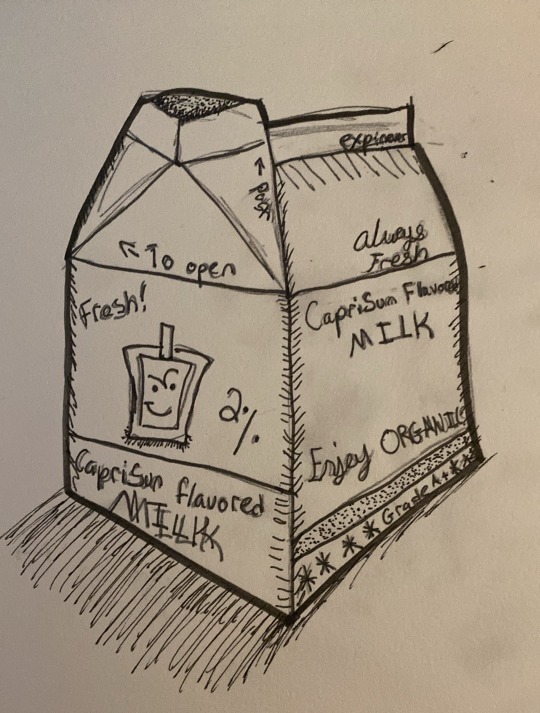 To open
Fresh!
2%
CapriSun flavored
MILK
always
Fresh
CapriSun Flavored
MILK
Enjoy ORGANIC
Grade A+